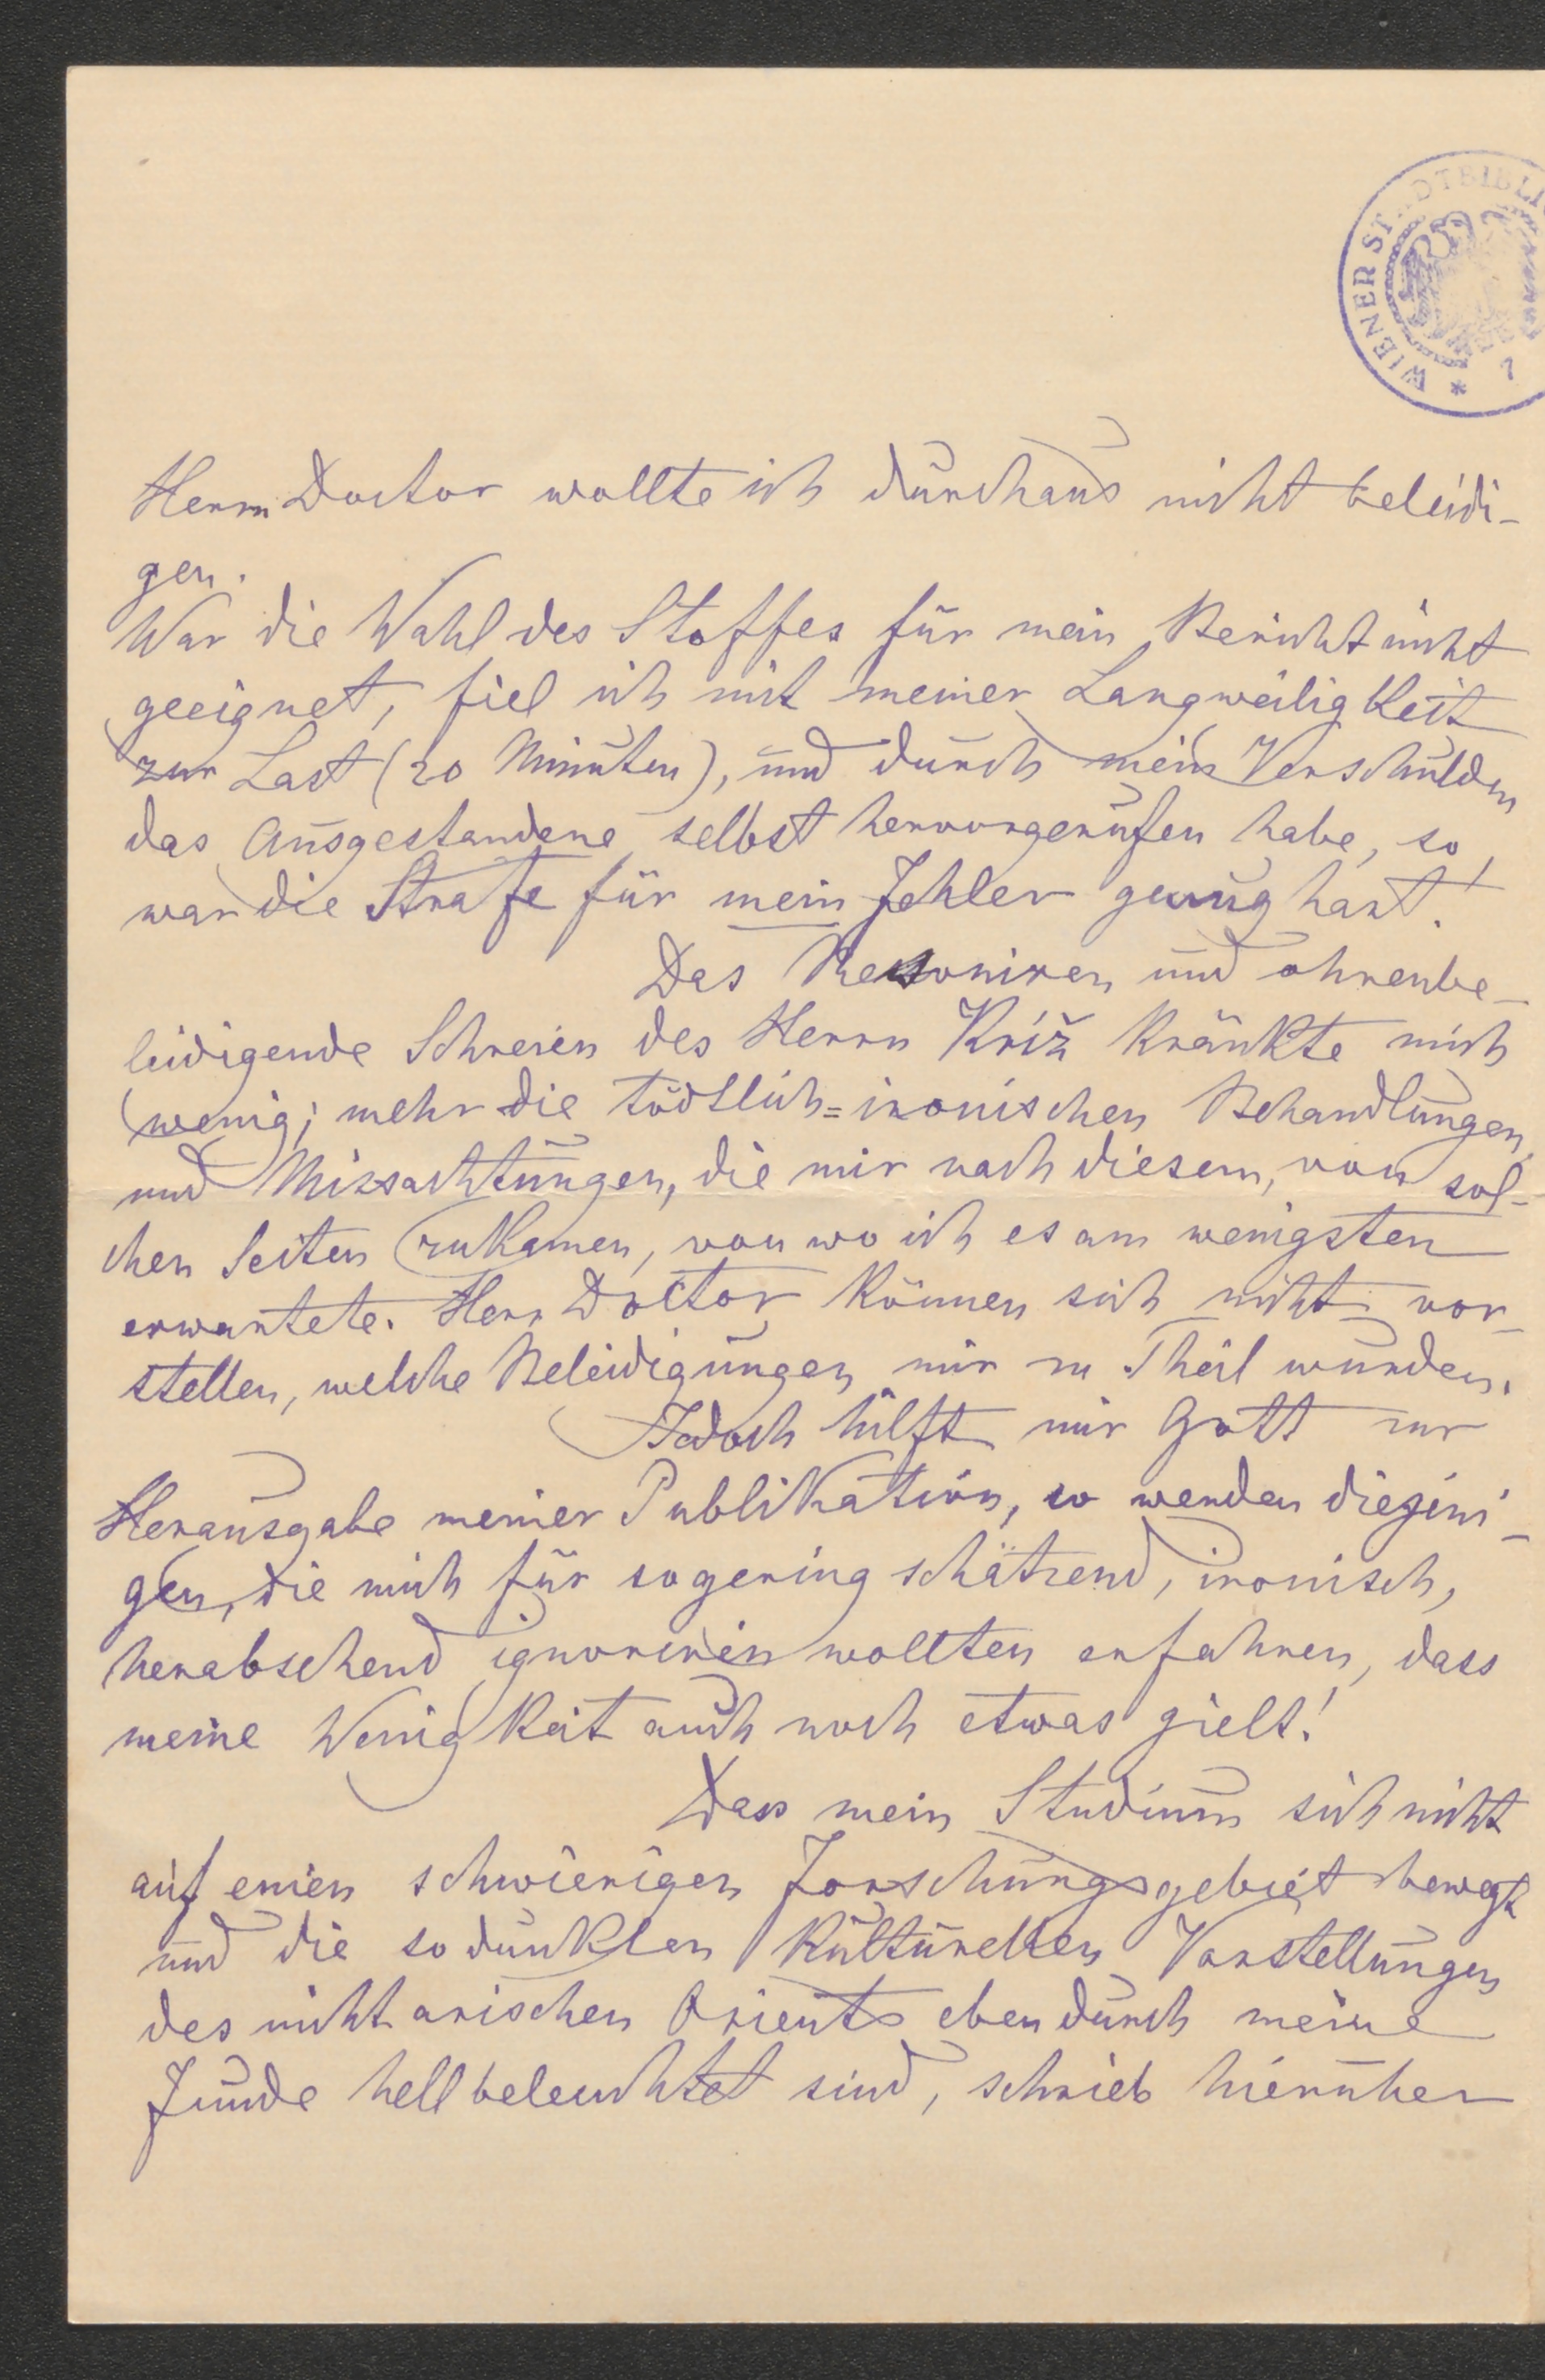 WIENER STADTBIBLI
* 1
Herrn Doctor wollte ich durchaus nicht beleidi-
gen.
War die Wahl des Stoffes für mein Bericht nicht
geeignet, fiel ich mit meiner Langweiligkeit
zur Last (20 Minuten), und durch mein Verschulden
das Ausgestandene selbst hervorgerufen habe, so
war die Strafe für mein Fehler genug hart!
Das Resoniren und ohrenbe-
leidigende Schreien des Herrn Križ kränkte mich
wenig; mehr die tödtlich=ironischen Behandlungen
und Missachtungen, die mir nach diesem, von sol-
chen Seiten zukamen, von wo ich es am wenigsten
erwartete. Herr Doctor können sich nicht vor-
stellen, welche Beleidigungen mir zu Theil wurden.
Jedoch hilft mir Gott zur
Herausgabe meiner Publikation, so werden diejeni-
gen, die mich für so geringschätzend, ironisch,
herabsehend ignoriren wollten erfahren, dass
meine Wenigkeit auch noch etwas gielt!
Dass mein Studium sich nicht
auf einen schwierigen Forschungsgebiet bewegt
und die so dunklen kulturellen Vorstellungen
des nicht arischen Orients eben durch meine
Funde hell beleuchtet sind, schrieb hierüber